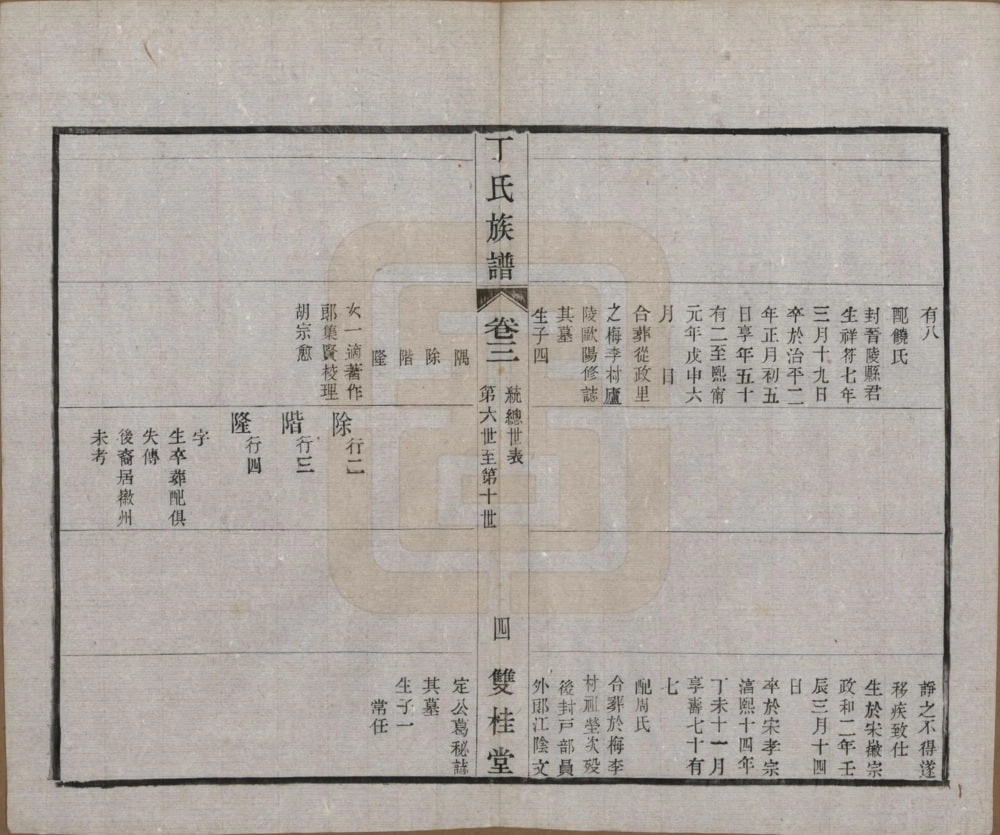 有八
配饒氏
封晉陵縣君
生祥符七年
三月十九日
卒於治平二
年正月初五
日享年五十
有二至熙甯
元年戊申六
月　日
合葬從政里
之梅李村廬
陵歐陽修誌
其墓
生子四
靜之不得遂
移疾致仕
生於宋徽宗
政和二年壬
辰三月十四
日
卒於宋孝宗
湻熙十四年
丁未十一月
享壽七十有
七
配周氏
合葬於梅李
村祖塋次歿
後封戸部員
外郞江陰文
丁氏族譜
卷三
統總世表
第六世至第十世
四
雙桂堂
隅
除
階
隆
女一適著作
郞集賢校理
胡宗愈
除行二
階行三
隆行四
字
生卒葬配俱
失傳
後裔居徽州
未考
定公葛秘誌
其墓
生子一
常任